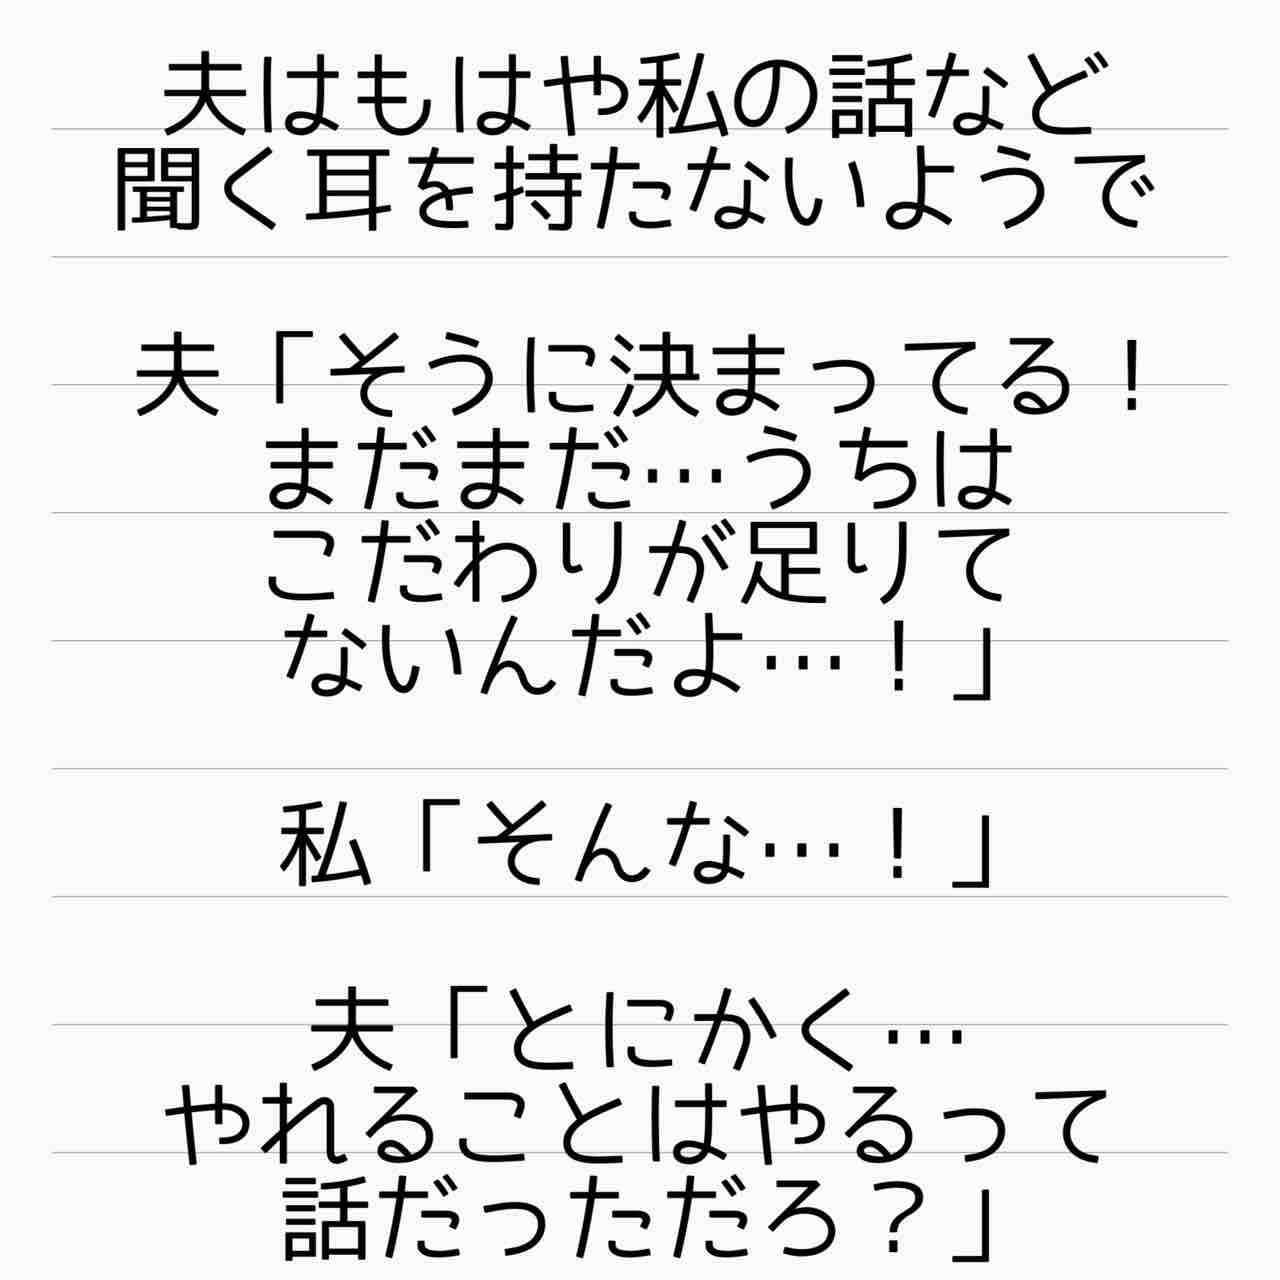 夫はもはや私の話など
聞く耳を持たないようで
夫「そうに決まってる！
まだまだ…うちは
こだわりが足りて
ないんだよ…！」
私「そんな…！」
夫「とにかく…
やれることはやるって
話だっただろ？」